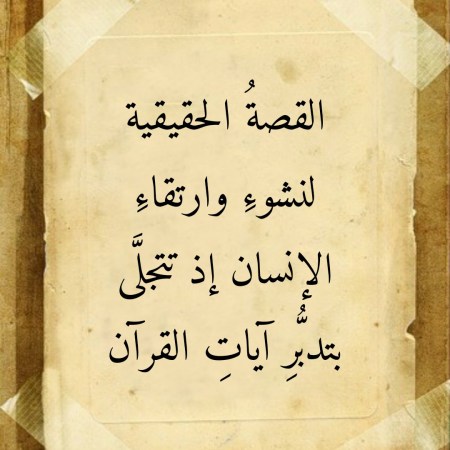 القصةُ الحقيقية
لنشوءِ وارتقاءِ
الإنسان إذ تتجلَّى
بتدبُّرِ آياتِ القرآن